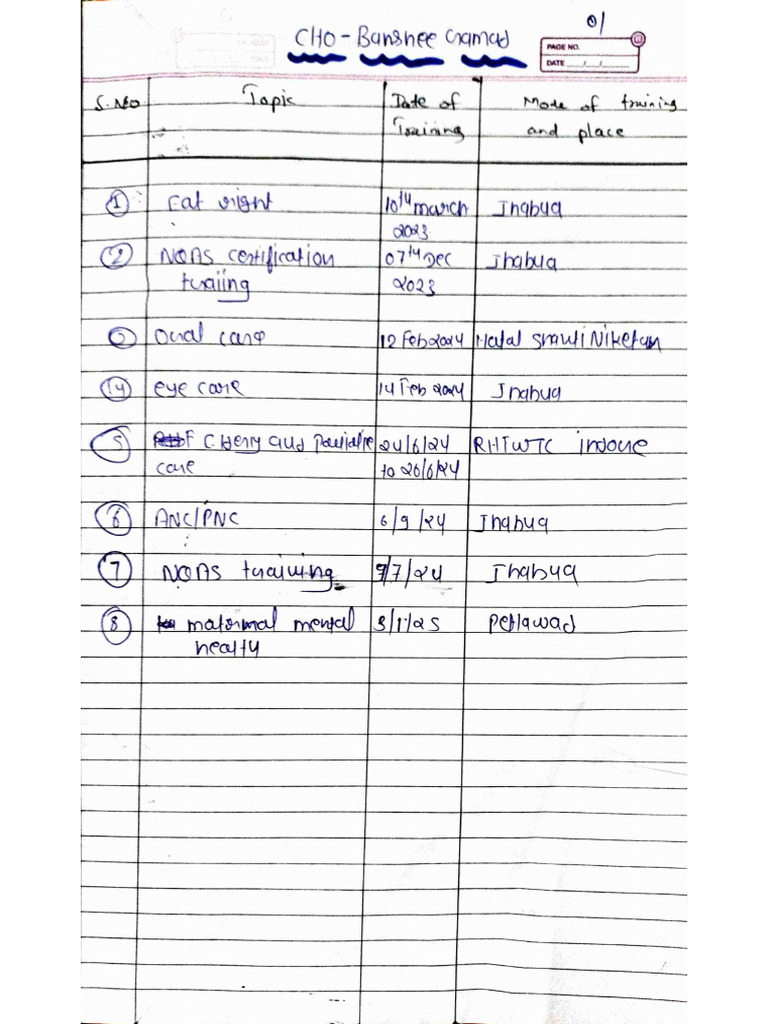 01
CHO - Banshee Gamad
PAGE NO.
DATE
S.No Topic Date of Training Mode of training and place
① Eat right 10th march 2023 Jhabua
② NQAS certification traiing 07th Dec 2023 Jhabua
③ Oral care 12 Feb 2024 Niketan
④ eye care 14 Feb 2024 Jhabua
⑤ and care 24/6/24 to 26/6/24 RHFWTC indore
⑥ ANC/PNC 6/9/24 Jhabua
⑦ NQAS training 9/7/24 Jhabua
⑧ maternal mental healty 3/1/25 Petlawad